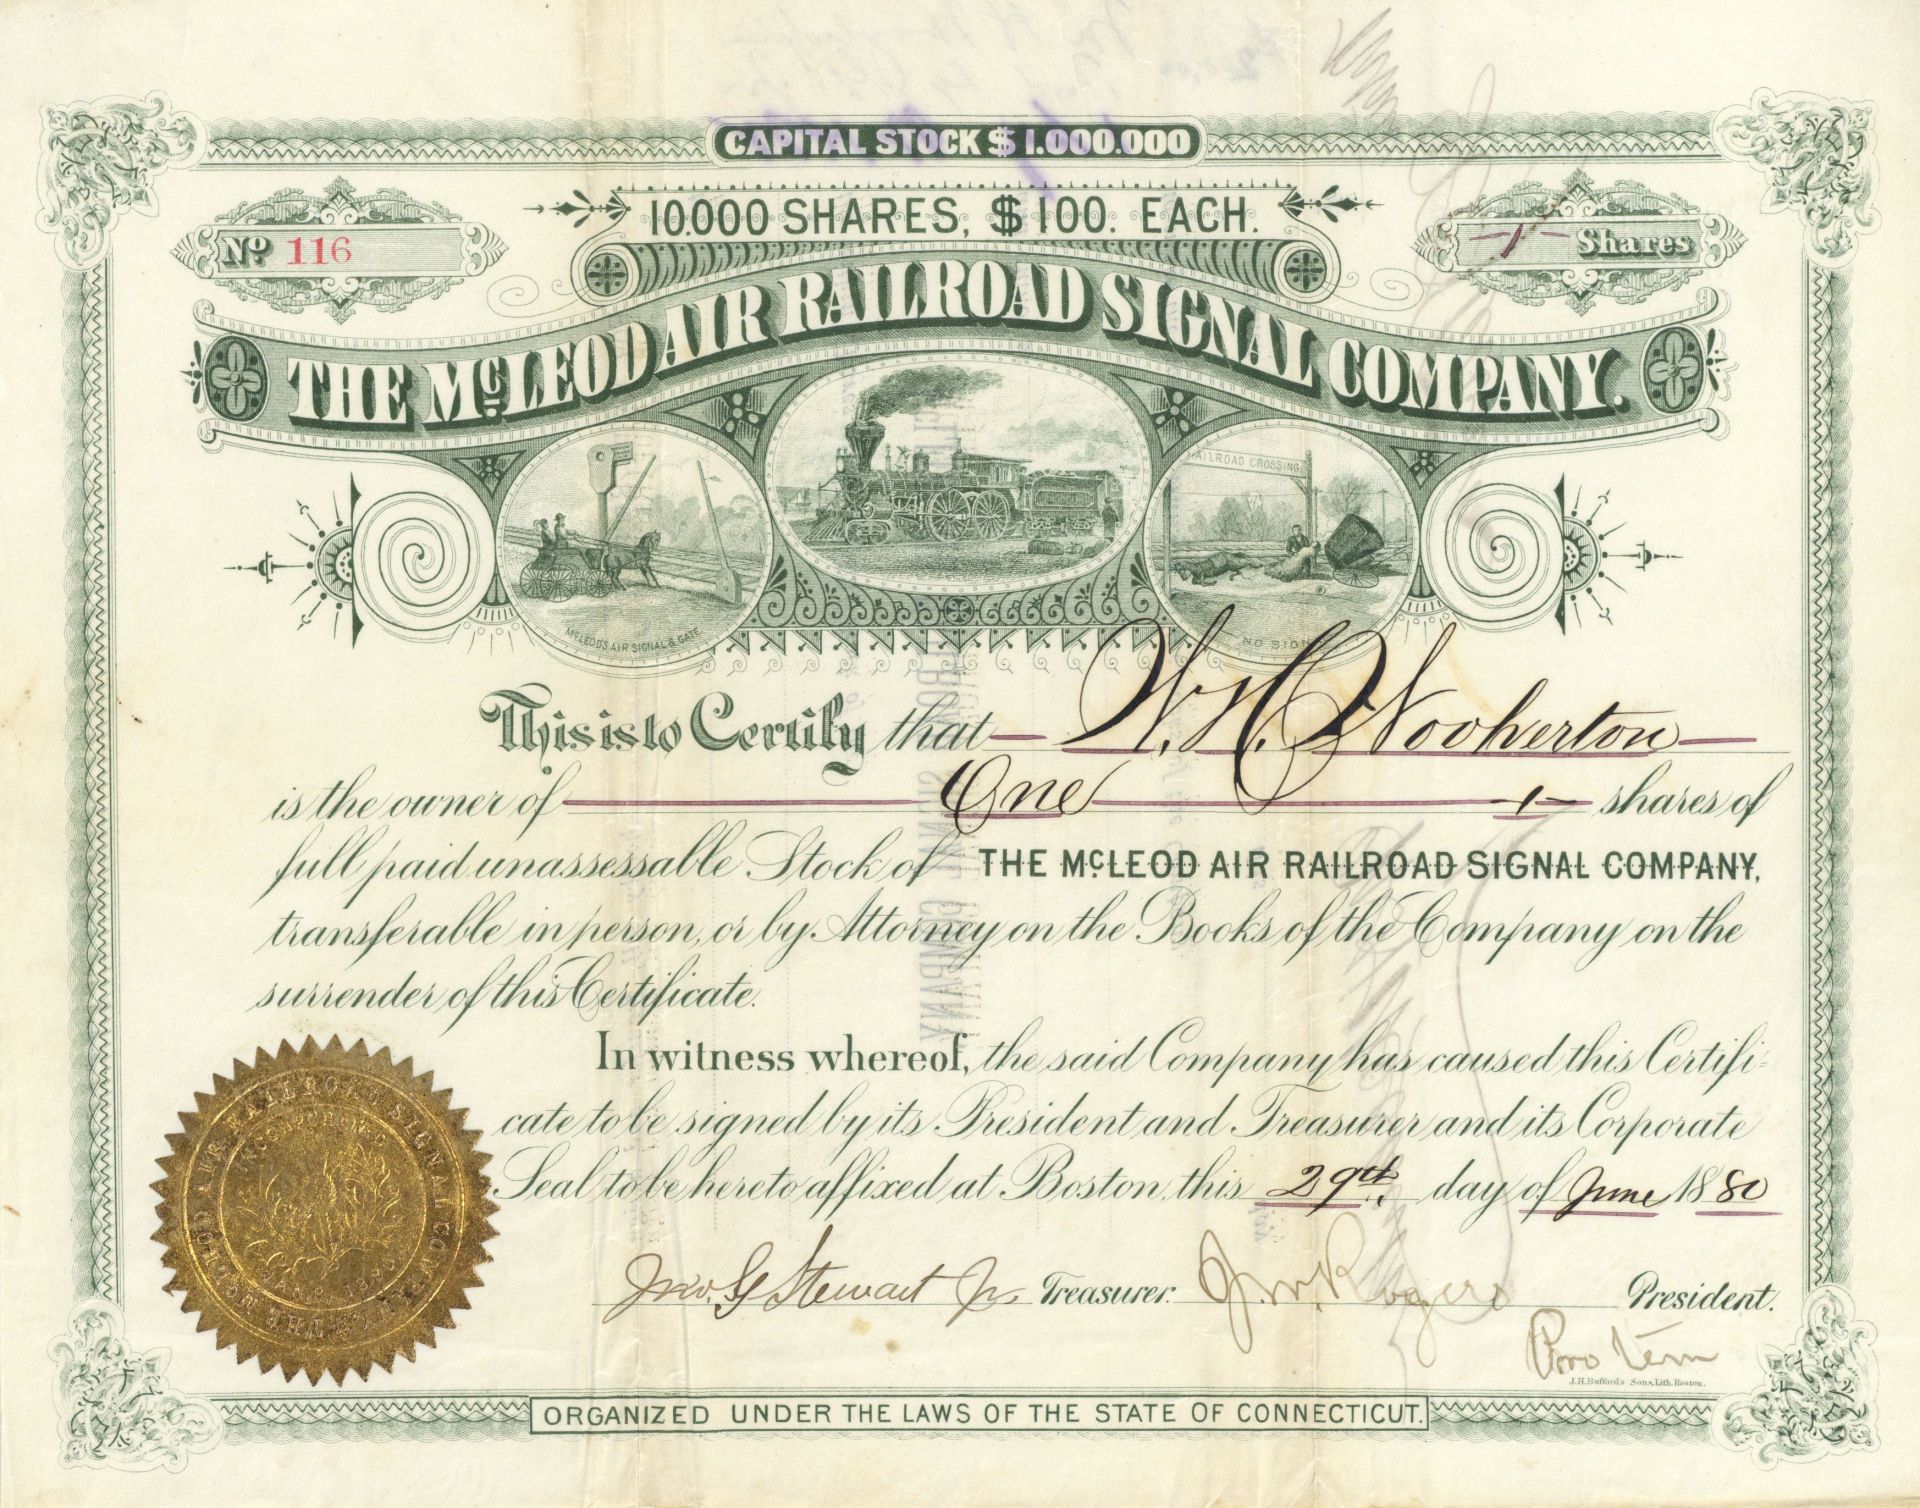 CAPITAL STOCK $1.000.000
10.000 SHARES, $100. EACH.
No 116
1 Shares
THE McLEOD AIR RAILROAD SIGNAL COMPANY.
RAILROAD CROSSING
McLEOD'S AIR SIGNAL & GATE
NO SIGNAL
This is to Certify that W. H. Wooherton
is the owner of One 1 shares of
full paid unassessable Stock of THE McLEOD AIR RAILROAD SIGNAL COMPANY,
transferable in person, or by Attorney on the Books of the Company on the
surrender of this Certificate.
In witness whereof, the said Company has caused this Certifi-
cate to be signed by its President and Treasurer and its Corporate
Seal to be hereto affixed at Boston, this 29th. day of June 1880
Jno. G Stewart Jr. Treasurer. J. W. Rogers President.
Pro Tem
J.H. Bufford's Sons, Lith. Boston.
THE McLEOD AIR RAILROAD SIGNAL COMPANY
INCORPORATED
1880
ORGANIZED UNDER THE LAWS OF THE STATE OF CONNECTICUT.